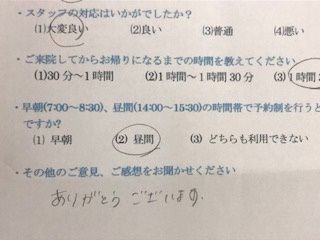 ・スタッフの対応はいかがでしたか？
(1)大変良い (2)良い (3)普通 (4)悪い
・ご来院してからお帰りになるまでの時間を教えてください
(1)30分～1時間 (2)1時間～1時間30分 (3)1時間
・早朝(7:00～8:30)、昼間(14:00～15:30)の時間帯で予約制を行うと
ですか?
(1) 早朝 (2) 昼間 (3) どちらも利用できない
・その他のご意見、ご感想をお聞かせください
ありがとうございます。